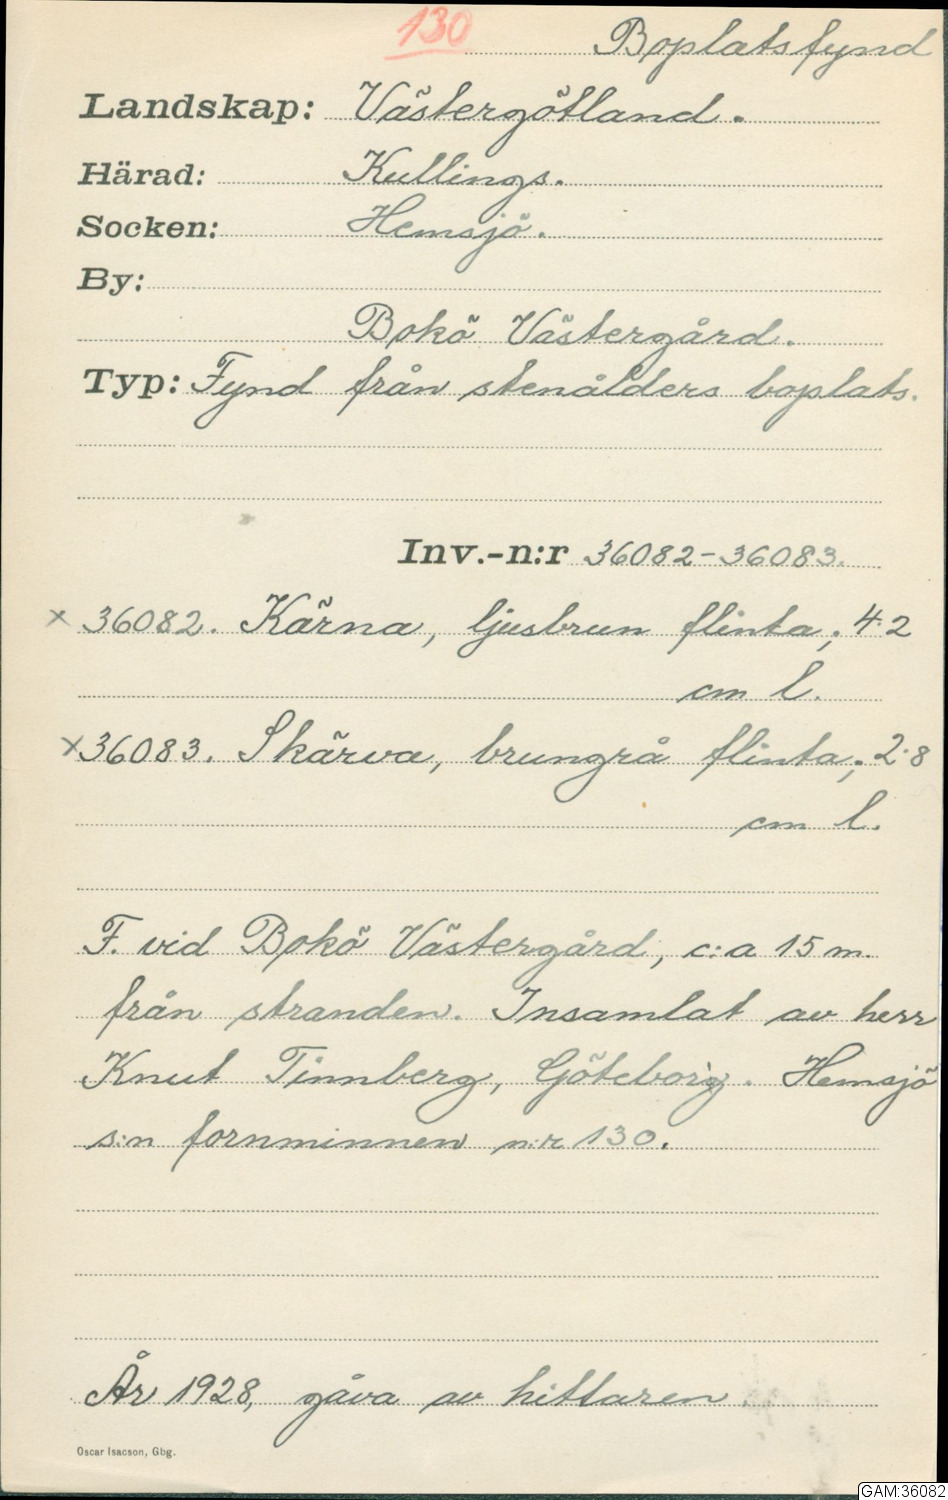 130
Boplatsfynd
Landskap: Västergötland.
Härad: Kullings.
Socken: Hemsjö.
By:
Bokö Västergård.
Typ: Fynd från stenålders boplats.
Inv.-n:r 36082-36083.
x 36082. Kärna, ljusbrun flinta; 4.2
cm l.
x 36083. Skärva, brungrå flinta; 2.8
cm l.
F. vid Bokö Västergård, c:a 15 m.
från stranden. Insamlat av herr
Knut Tinnberg, Göteborg. Hemsjö
s:n fornminnen n:r 130.
År 1928, gåva av hittaren
Oscar Isacson, Gbg.
GAM:36082